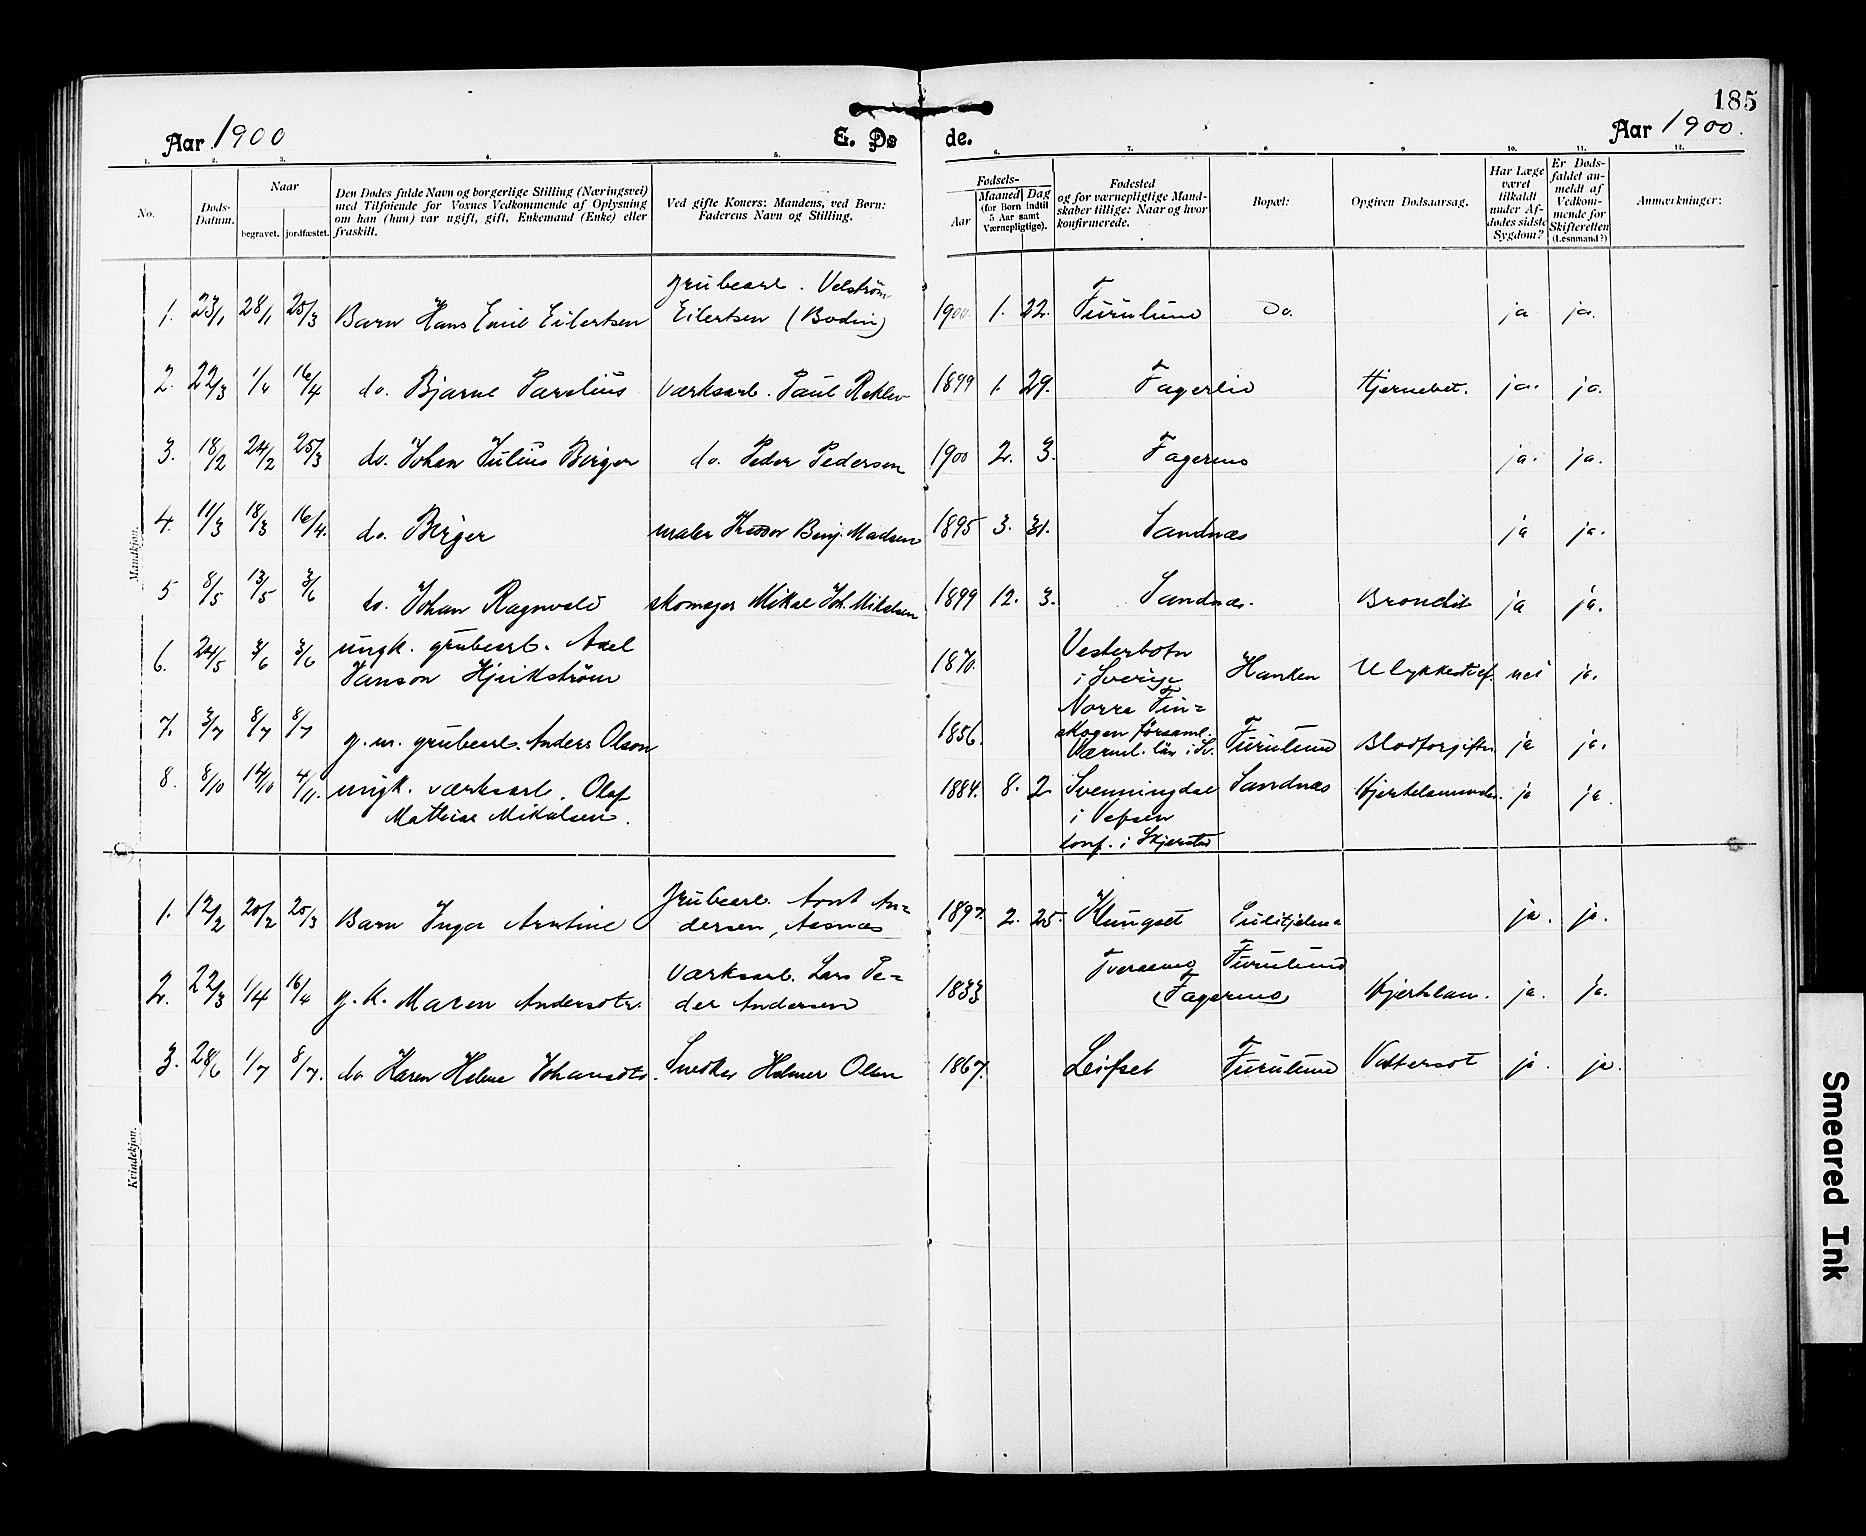 185
Aar 1900
E. Dø de.
Aar 1900.
1. 2. 3. 4. 5. 6. 7. 8 9 10. 11. 12.
No.
Døds-Datum.
Naar
begravet.
jordfæstet.
Den Dødes fulde Navn og borgerlige Stilling (Næringsvei)
med Tilføiende for Voxnes Vedkommende af Oplysning
om han (hun) var ugift, gift, Enkemand (Enke) eller
fraskilt.
Ved gifte Koners: Mandens, ved Børn:
Faderens Navn og Stilling.
Fødsels-
Aar
Maaned Dag
(for Børn indtil
5 Aar samt
Værnepligtige).
Fødested
og for værnepligtige Mand-
skaber tillige: Naar og hvor
konfirmerede.
Bopæl:
Opgiven Dødsaarsag.
Har Læge
været
tilkaldt
under Af-
dødes sidste
Sygdom?
Er Døds-
faldet an-
meldt af
Vedkom-
mende for
Skifteretten
(Lensmand?)
Anmærkninger:
Mandkjøn.
1. 23/1 28/1 25/3 Barn Hans Emil Eilertsen grubearb. Velström
Eilertsen (Bodin) 1900. 1. 22. Furulund Do. ja ja.
2. 22/3 1/4 16/4 do. Bjarne Parelius værksarb. Paul 1899 1. 29. Fagerlid Hjernebet. ja. ja.
3. 18/2 24/2 25/3 do. Johan Julius Birger do. Peder Pedersen 1900 2. 3. Fagernes ja. ja.
4. 11/3 18/3 16/4. do. Birger maler Benj. Madsen 1895 3. 31. Sandnæs ja ja.
5 8/5 13/5 3/6 do. Johan Ragnvald skomager Mikal Joh. Mikalsen 1899 12. 3. Sandnæs. Bronchit ja ja.
6. 24/5 3/6 3/6 ungk. grubearb. Axel
Janson 1870. Vesterbotn
i Sverige Hanken Ulykkestilf. nei ja.
7. 3/7 8/7 8/7 g. m. grubearb. Anders Olson 1856. Norra Fin=
skogen församl.
Værml. län i Sv. Furulund Blodforgiftn. ja ja.
8. 8/10 14/10 4/11. ungk. værksarb. Olaf
Mathias Mikalsen. 1884. 8. 2 Svenningdal
i Vefsen
konf. i Skjerstad Sandnæs ja ja.
Kvindekjøn.
1. 12/2 20/2 25/3 Barn Inga Arntine Grubearb. Arnt An=
dersen, Aasnæs 1897. 2. 25. Klungset Sulitjelma ja. ja.
2. 22/3 1/4 16/4 g. k. Maren Andersdtr. Værksarb. Lars Pe=
der Andersen 1833 Tveraamo
(Fagernes) Furulund Hjerteslam. ja. ja.
3. 28/6 1/7 8/7. do Karen Helene Johansdtr. Snedker Helmer Olsen 1867. Leifset Furulund Vattersot ja. ja.
Smeared Ink